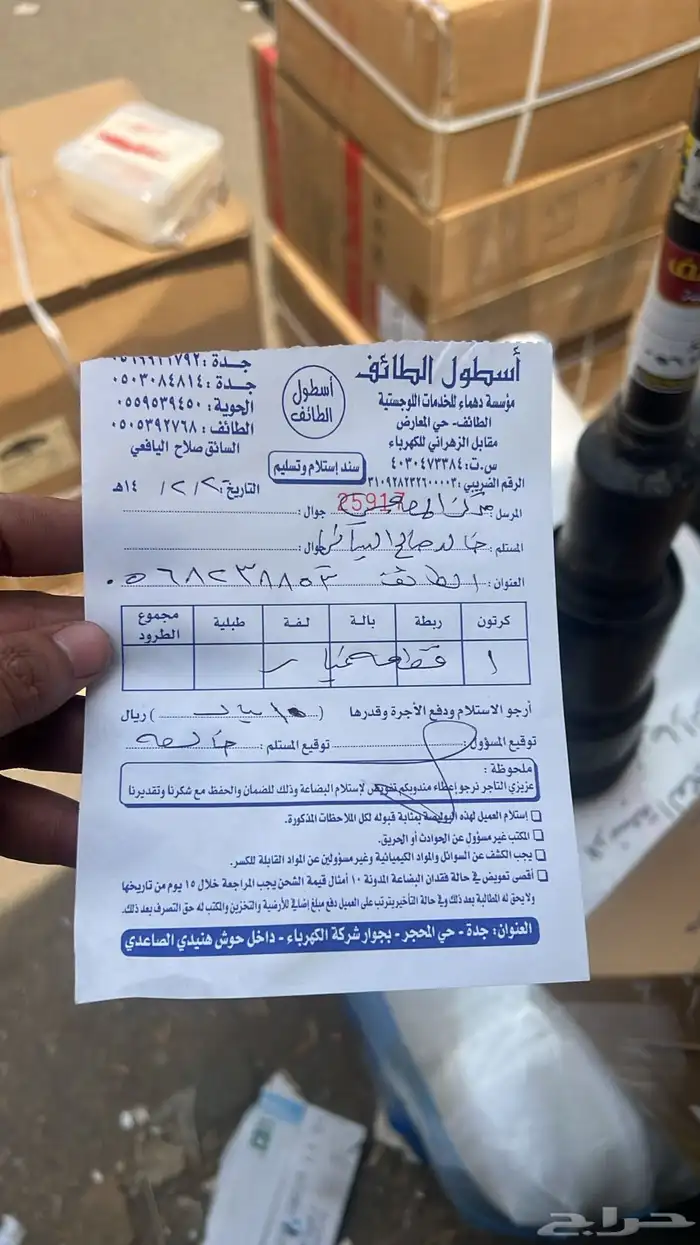 أسطول الطائف
مؤسسة دهماء للخدمات اللوجستية
الطائف- حي المعارض
مقابل الزهراني للكهرباء
س.ت: ٤٠٣٠٤٧٣٣٨٤
الرقم الضريبي: ٣١٠٩٢٨٢٣٢٦٠٠٠٠٣
أسطول
الطائف
سند إستلام وتسليم
جدة: ٠٥٠٣٠٨٤٨١٤
الحوية: ٠٥٥٩٥٣٩٤٥٠
الطائف: ٠٥٠٥٣٩٢٧٦٨
السائق صلاح اليافعي
التاريخ: ٢ / ٢ / ١٤هـ
25917
المرسل: مركز جوال:
المستلم: خالد صالح جوال:
العنوان: الطائف ٠٥٦٨٢٣٨٨٥٣
كرتون ربطة بالة لفة طبلية مجموع الطرود
١ قطعه
أرجو الاستلام ودفع الأجرة وقدرها ( ) ريال
توقيع المسؤول: توقيع المستلم:
ملحوظة:
عزيزي التاجر نرجو إعطاء مندوبكم تفويض لإستلام البضاعة وذلك للضمان والحفظ مع شكرنا وتقديرنا
إستلام العميل لهذه البوليصة بمثابة قبوله لكل الملاحظات المذكورة.
المكتب غير مسؤول عن الحوادث أو الحريق.
يجب الكشف عن السوائل والمواد الكيميائية وغير مسؤولين عن المواد القابلة للكسر.
أقصى تعويض في حالة فقدان البضاعة المدونة ١٠ أمثال قيمة الشحن يجب المراجعة خلال ١٥ يوم من تاريخها
ولا يحق له المطالبة بعد ذلك وفي حالة التأخير يترتب على العميل دفع مبلغ إضافي للأرضية والتخزين والمكتب له حق التصرف بعد ذلك.
العنوان: جدة - حي المحجر - بجوار شركة الكهرباء - داخل حوش هنيدي الصاعدي
حراج